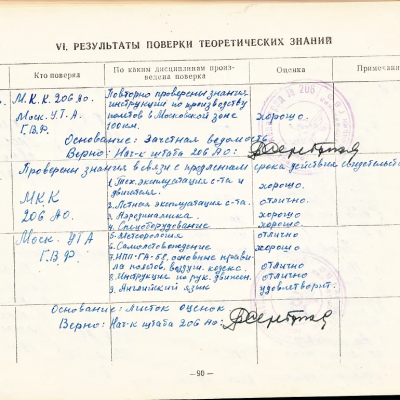 VI. РЕЗУЛЬТАТЫ ПОВЕРКИ ТЕОРЕТИЧЕСКИХ ЗНАНИЙ
Кто поверка
По каким дисциплинам произ-
ведена поверка
Оценка
Примечани
М.К.К. 206 АО.
Моск. У.Г.А.
Г.В.Ф.
Повторно проверены знания
инструкции по производству
полетов в Московской зоне
100км.
хорошо.
Основание: Зачетная ведомость
Верно: Нач-к штаба 206 АО:
Проверены знания в связи с продлением срока действия свидетельс
МКК
206 АО.
Моск. УГА
Г.В.Ф.
1. Тех. эксплуатация с-та и
двигателя.
хорошо.
2. Летная эксплуатация с-та.
отлично.
3. Аэродинамика.
хорошо
4. Спецоборудование
хорошо
5. Метеорология
отлично
6. Самолетовождение
хорошо
7. НПП-ГА-58, основные прави-
ла полетов, воздуш. кодекс.
отлично
8. Инструкция по рук. движен.
отлично
9. Английский язык
удовлетворит.
Основание: Листок оценок
Верно: Нач-к штаба 206 АО:
— 90 —